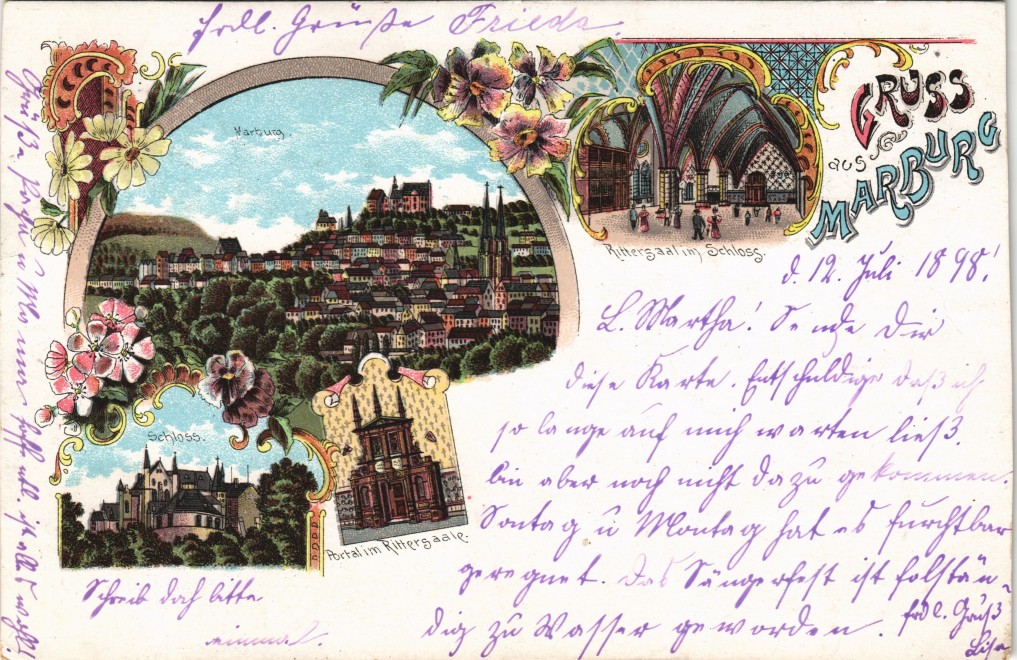 frdl. Grüße Frieda.
Marburg
GRUSS
aus
MARBURG
Rittersaal im Schloss.
Schloss.
Portal im Rittersaale.
d. 12. Juli 1898!
L. Martha! Sende Dir
diese Karte. Entschuldige daß ich
so lange auf mich warten ließ.
bin aber noch nicht dazu gekommen.
Sontag u Montag hat es furchtbar
geregnet. Das Sängerfest ist folstän-
dig zu Wasser geworden.
frdl. Gruß
Lisa
Schreib doch bitte
einmal.
Grüße